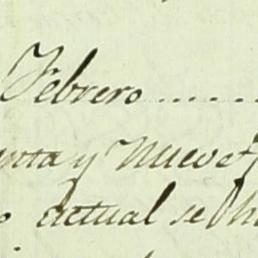 Febrero ......
nta y Nueve
actual se